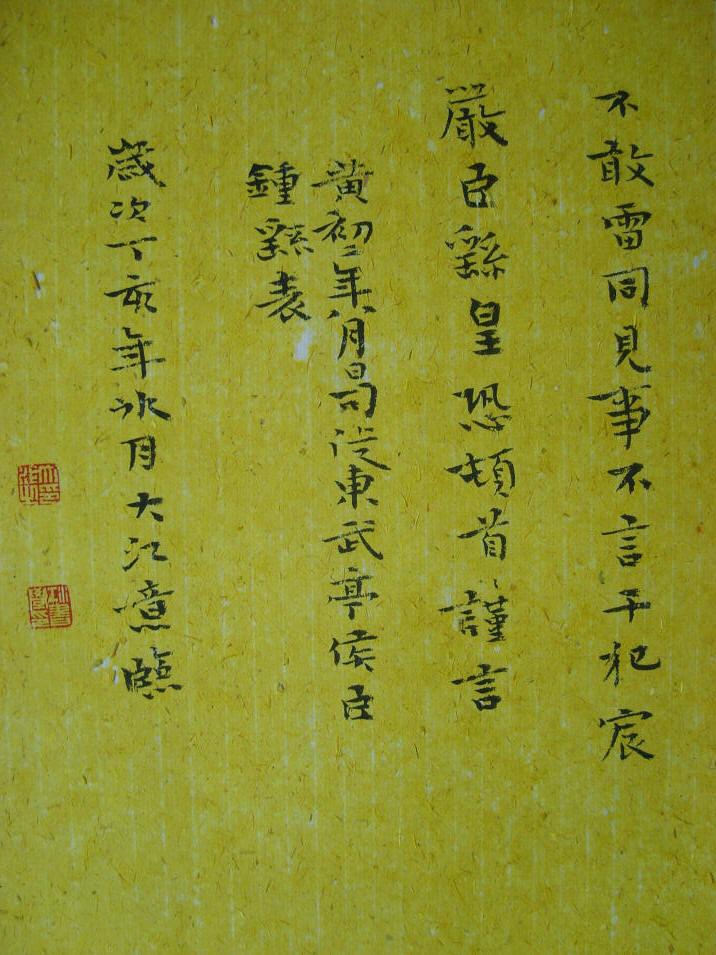 不敢雷同見事不言干犯宸
嚴臣繇皇恐頓首〻謹言
黄初二年八月日司徒東武亭侯臣
鍾繇表
歲次丁亥年冰月大江意臨